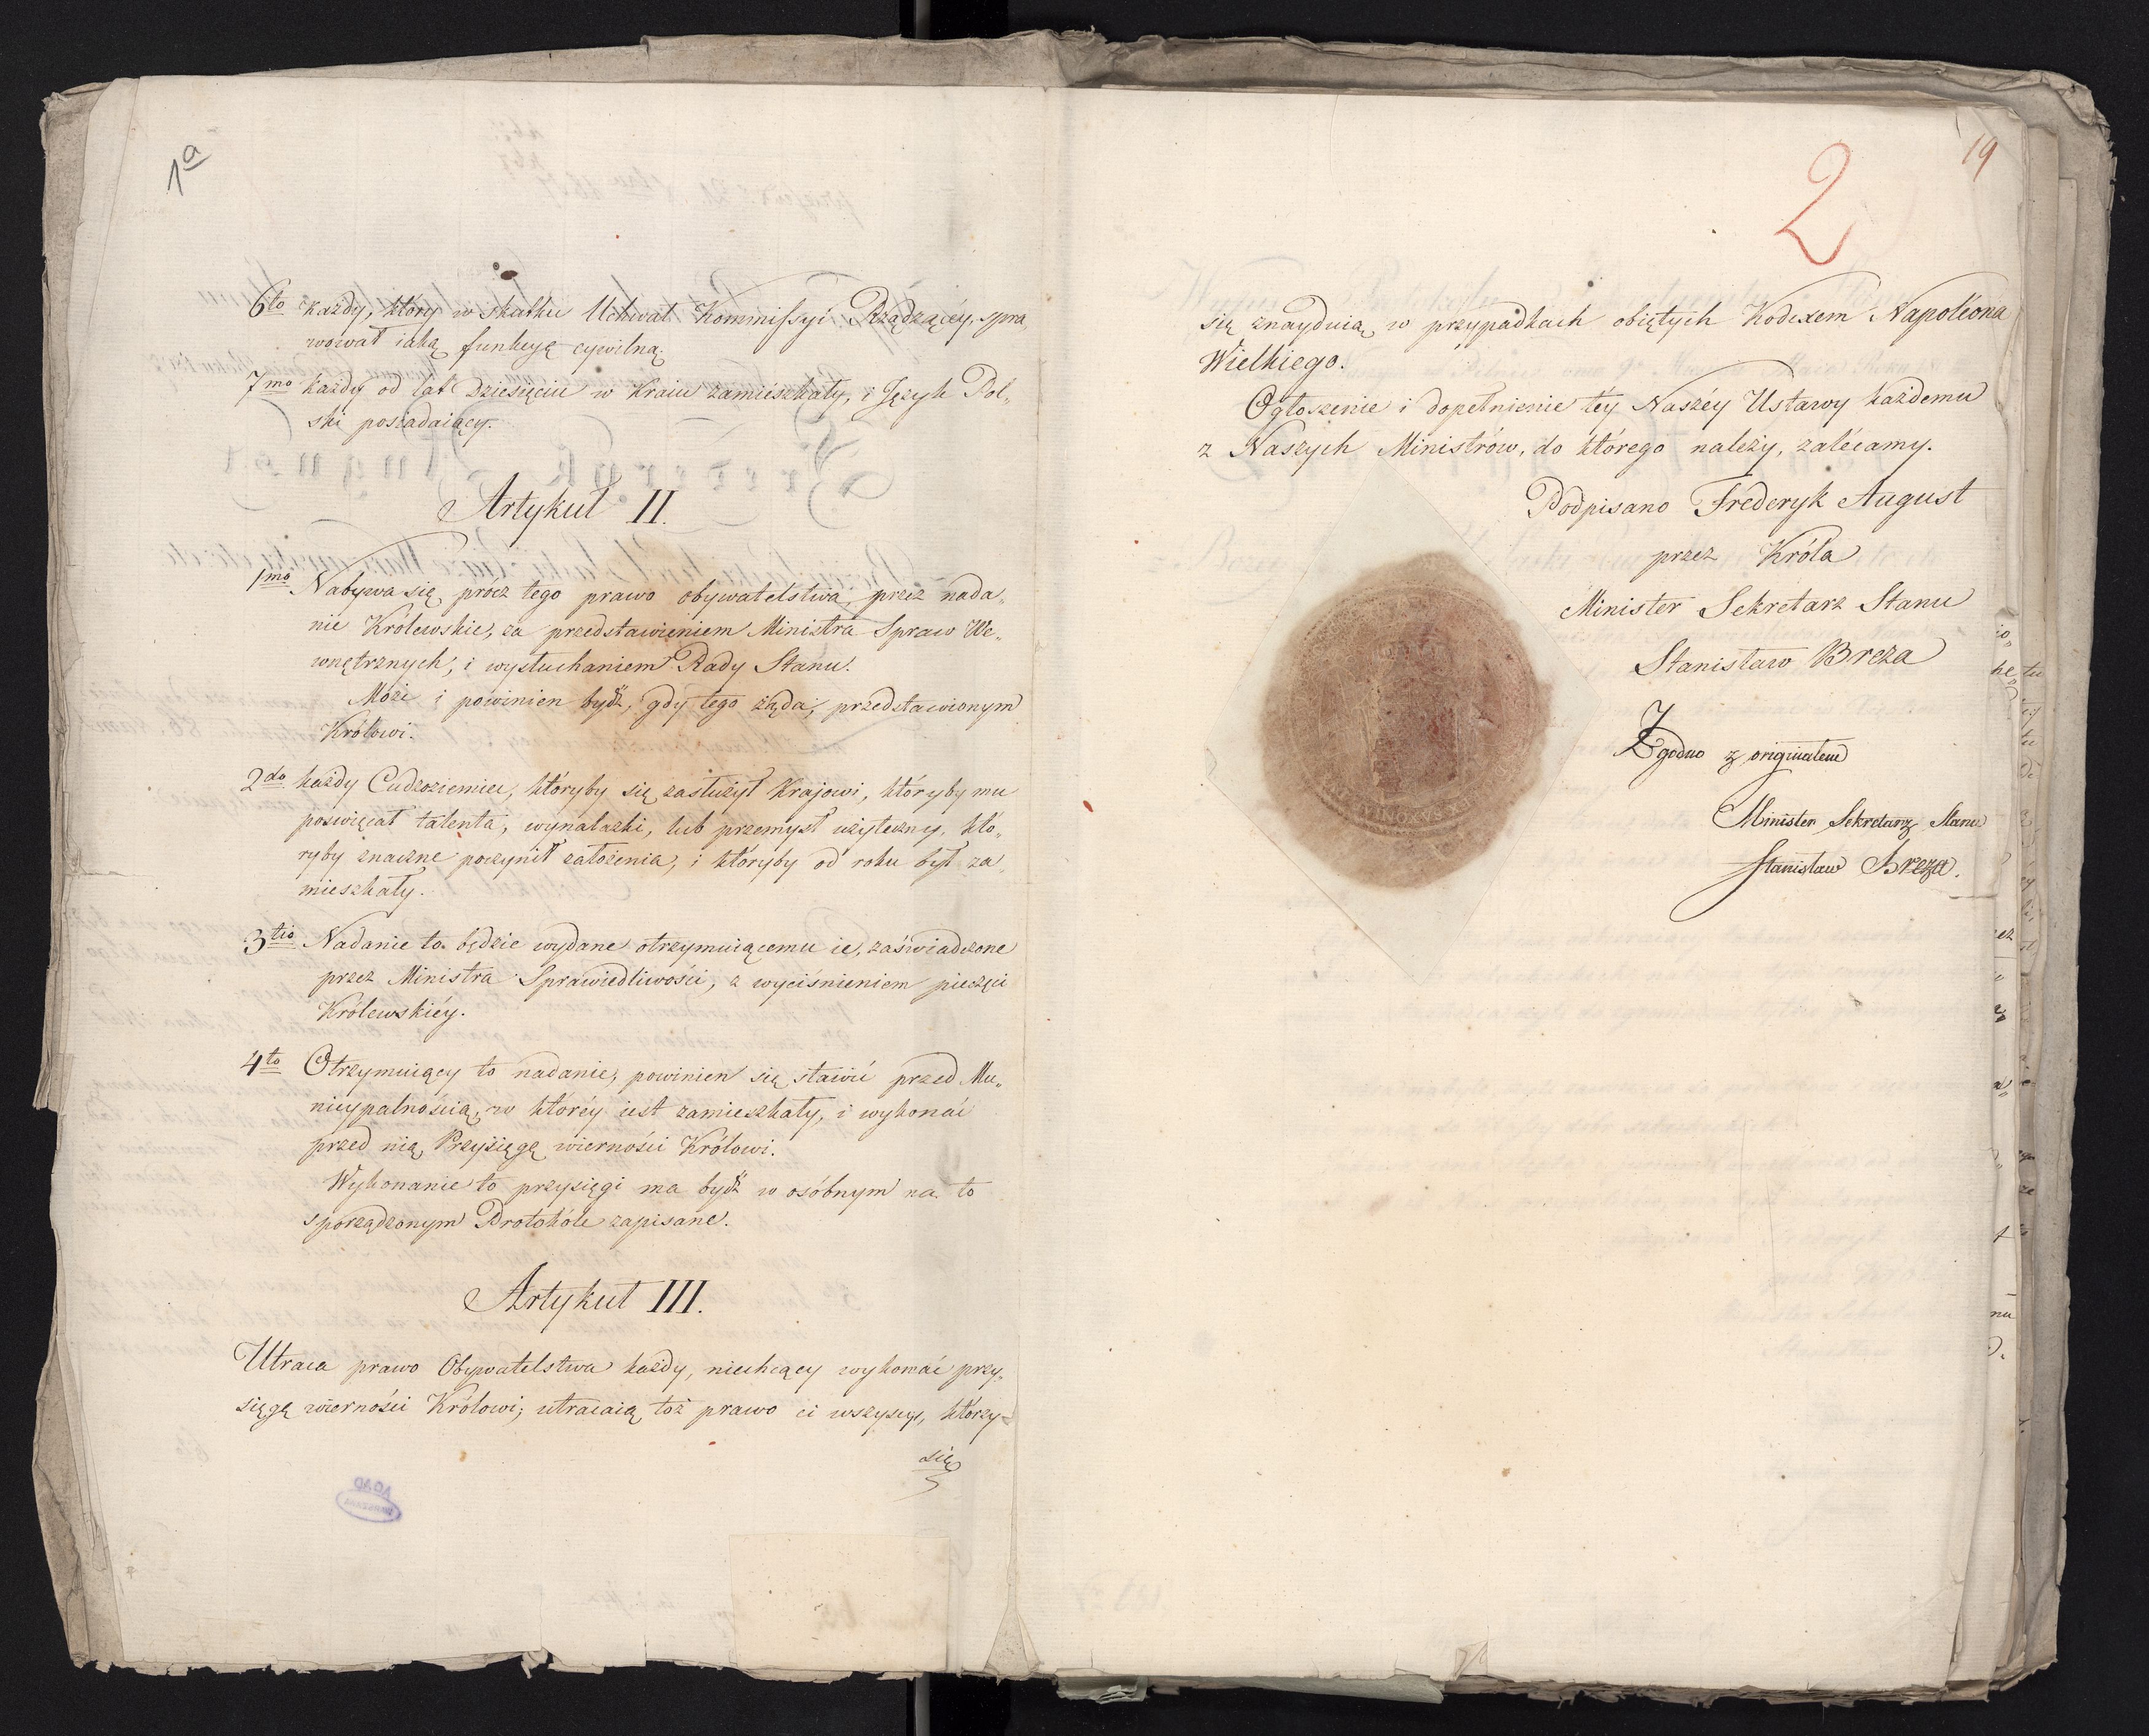 1a
6to każdy, który w skutku Uchwał Kommissyi Rządzącey, spra„
wował iaką funkcyę cywilną.
7mo każdy od lat dziesięciu w Kraiu zamieszkały, i Język Pol„
ski posiadaiący.
Artykuł II.
1mo Nabywa się, prócz tego prawo obywatelstwa, przez nada„
nie Królewskie, za przedstawieniem Ministra Spraw We„
wnętrznych, i wysłuchaniem Rady Stanu.
Może i powinien bydź, gdy tego żąda, przedstawionym
Królowi.
2do każdy Cudzoziemiec, któryby się zasłużył Krajowi, któryby mu
poświęcał talenta, wynalazki, lub przemysł użyteczny, któ„
ryby znaczne poczynił założenia, i któryby od roku był za„
mieszkały.
3tio Nadanie to będzie wydane otrzymuiącemu ie, zaświadczone
przez Ministra Sprawiedliwości, z wyciśnieniem pieczęci
Królewskiéy.
4to Otrzymuiący to nadanie, powinien się stawić przed Mu„
nicypalnością, w któréy iest zamieszkały, i wykonać
przed nią Przysięgę wierności Królowi.
Wykonanie to przysięgi ma bydź w osóbnym na to
sporządzonym Protokóle zapisane.
Artykuł III.
Utraca prawo Obywatelstwa każdy, niechcący wykonać przy„
sięgę wierności Królowi; utracaią toż prawo ci wszyscy, którzy
się
2
19
się znayduią w przypadkach obiętych Kodexem Napoléona
Wielkiego.
Ogłoszenie i dopełnienie téy Naszéy Ustawy każdemu
z Naszych Ministrów, do którego należy, zalécamy.
Podpisano Fréderyk August
przez Króla
Minister Sekretarz Stanu
Stanisław Breza
Zgodno z originałem
Minister Sekretarz Stanu
Stanisław Breza.